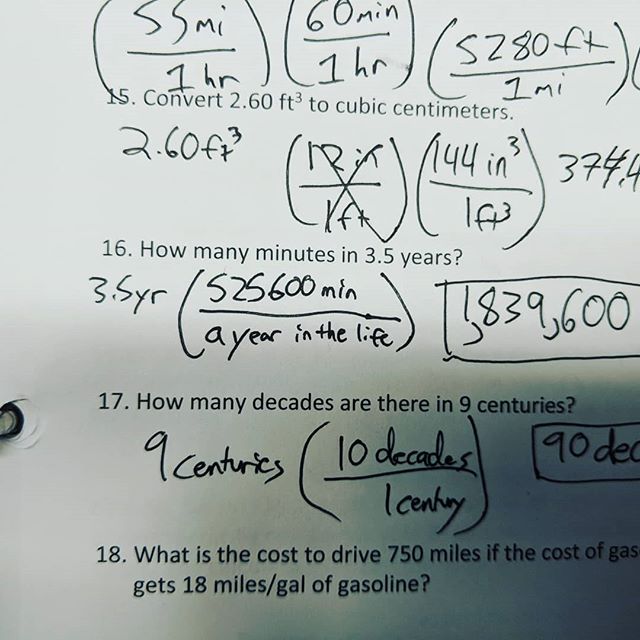 55mi 60min 5280ft
1hr 1hr 1mi
15. Convert 2.60 ft³ to cubic centimeters.
2.60ft³ 12 in 144 in³ 374.4
1ft 1ft³
16. How many minutes in 3.5 years?
3.5yr 525600 min 1,839,600
a year in the life
17. How many decades are there in 9 centuries?
9 centuries 10 decades 90 dec
1 century
18. What is the cost to drive 750 miles if the cost of gas
gets 18 miles/gal of gasoline?